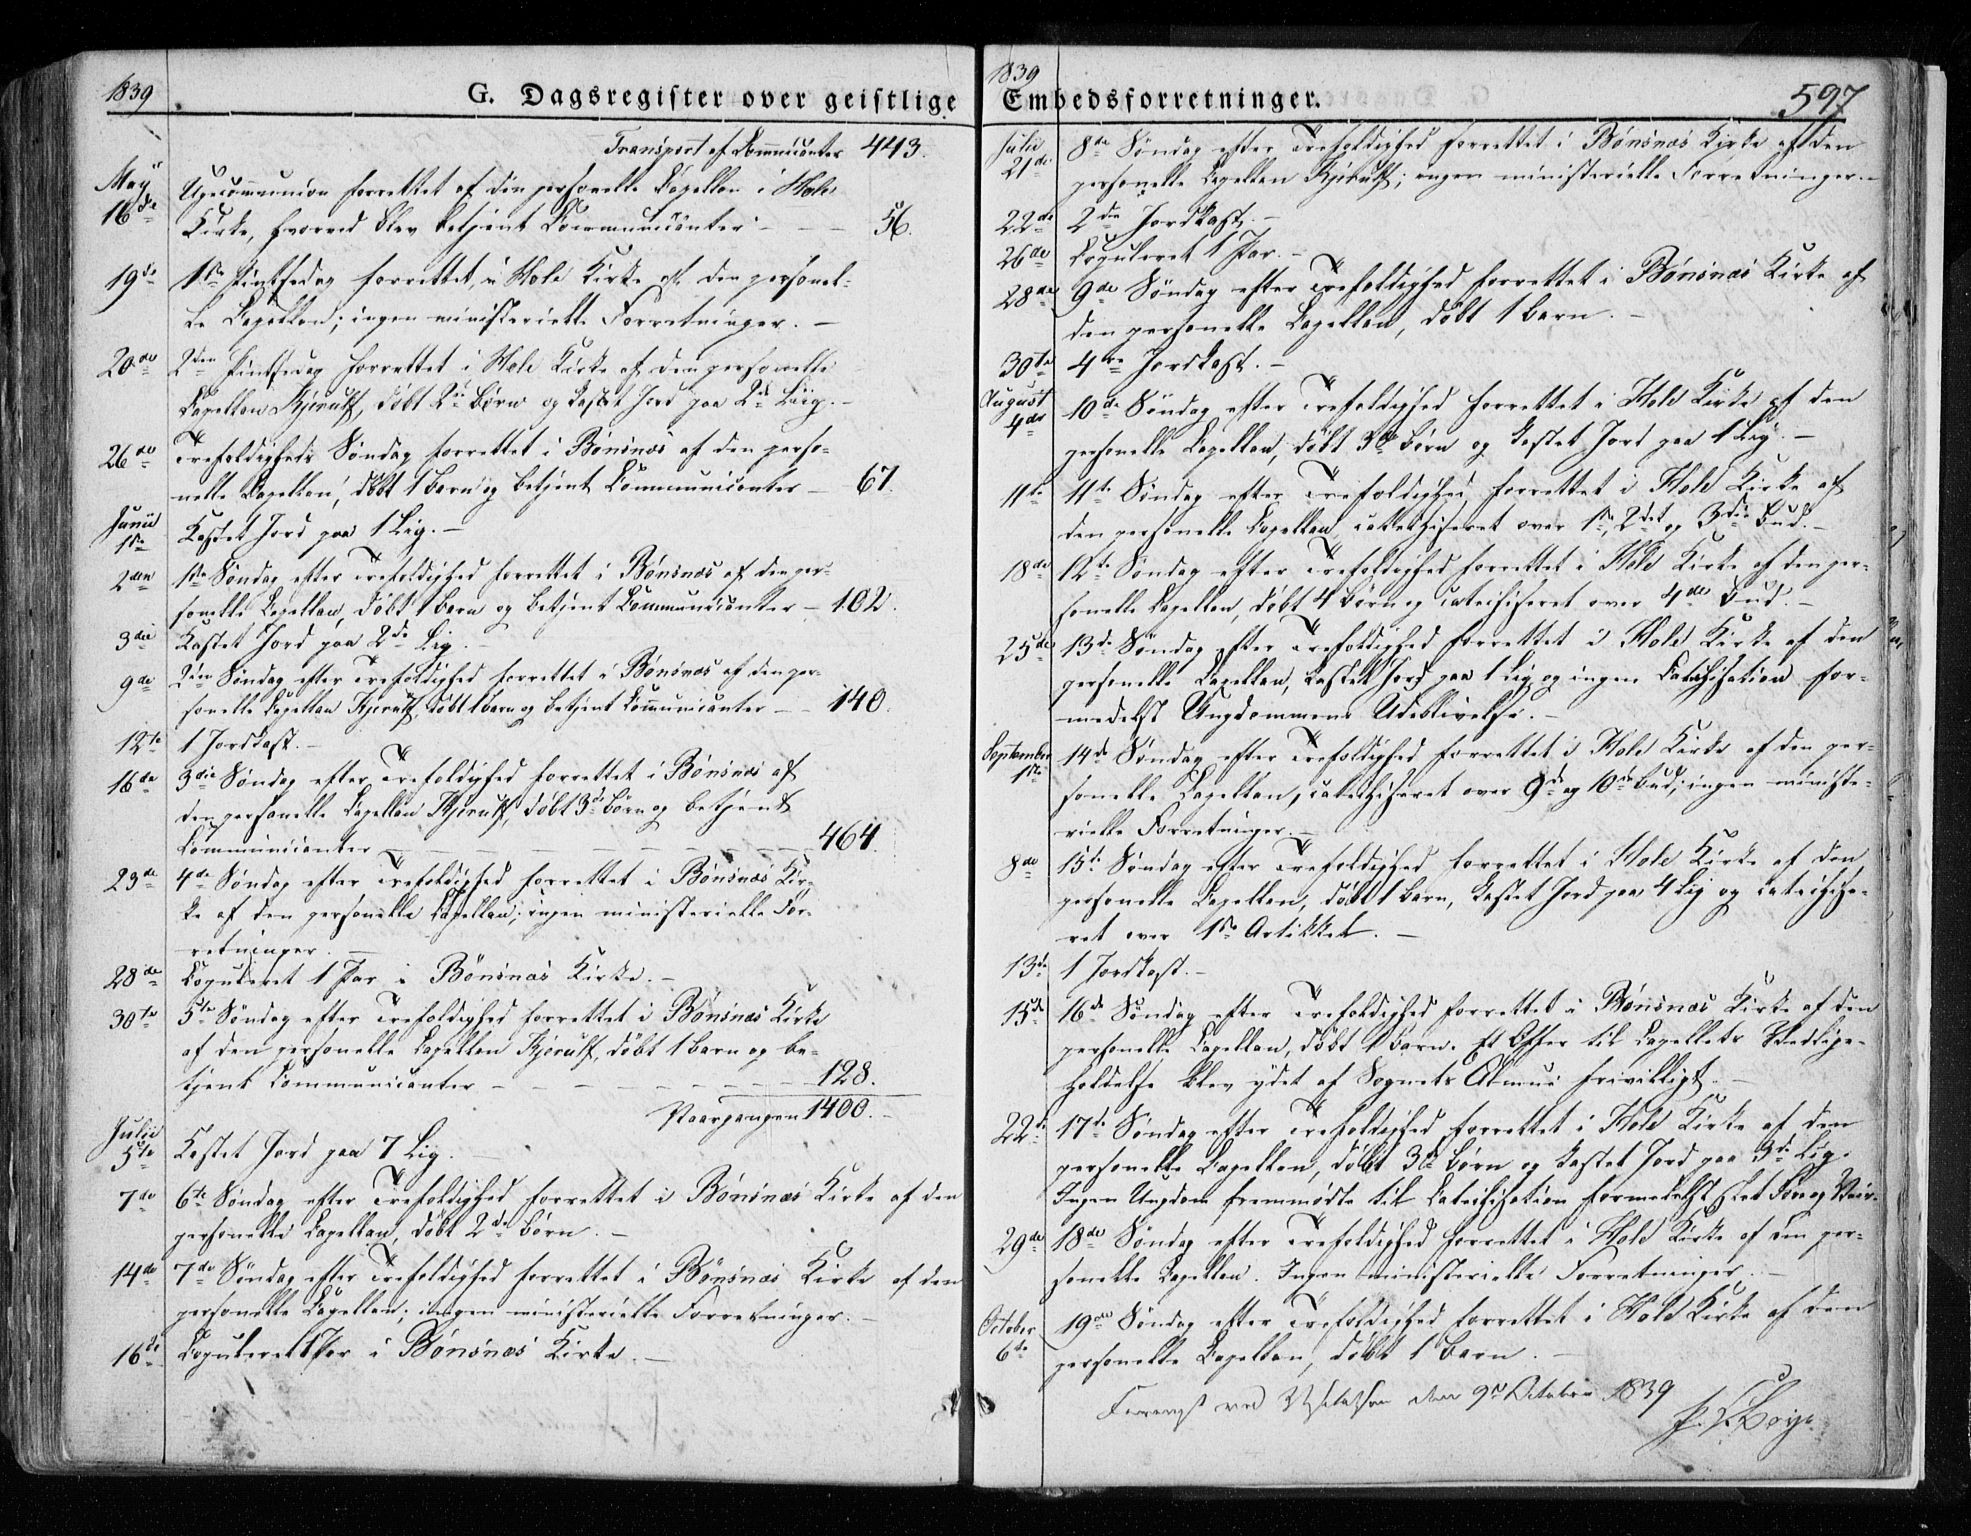 1839
G. Dagsregister over geistlige
Transport af Communicanter 443.
May
16de
Ugecommunion forrettet af den personelle Capellan i Hole
Kirke, hvorved blev betjent Communicanter - - - 56.
19de 1ste Pintsedag forrettet i Hole Kirke af den personel-
le Capellan; ingen ministerielle Forretninger. -
20de 2den Pintsedag forrettet i Hole Kirke af den personelle
Capellan Kjerulf, døbt 2de Børn og kastet Jord paa 2de Liig. -
26de Trefoldigheds Søndag forrettet i Bönsnæs af den perso-
nelle Capellan, døbt 1 Barn og betjent Communicanter - 67.
Junii
1ste Kastet Jord paa 1 Lig. -
2den 1ste Søndag efter Trefoldighed forrettet i Bönsnæs af den per-
sonelle Capellan, døbt 1 Barn og betjent Communicanter - 102.
3die Kastet Jord paa 2de Lig. -
9de 2den Søndag efter Trefoldighed forrettet i Bönsnæs af den per-
sonelle Capellan Kjerulf, døbt 1 Barn og betjent Communicanter - - 140.
12te 1 Jordkast. -
16de 3die Søndag efter Trefoldighed forrettet i Bönsnæs af
den personelle Capellan Kjerulf, døbt 3de Børn og betjent
Communicanter - - - - - - - - 464.
23de 4de Søndag efter Trefoldighed forrettet i Bönsnæs Kir-
ke af den personelle Capellan; ingen ministerielle For-
retninger. -
28de Copuleret 1 Par i Bönsnæs Kirke. -
30te 5te Søndag efter Trefoldighed forrettet i Bönsnæs Kirke
af den personelle Capellan Kjerulf, døbt 1 Barn og be-
tjent Communicanter - - - - - - 128.
1400. -
Julii
5te Kastet Jord paa 7 Lig. -
7de 6te Søndag efter Trefoldighed forrettet i Bönsnæs Kirke af den
personelle Capellan, døbt 2de Børn. -
14de 7de Søndag efter Trefoldighed forrettet i Bönsnæs Kirke af den
personelle Capellan; ingen ministerielle Forretninger. -
16de Copuleret 1 Par i Bönsnæs Kirke. -
1839
Embedsforretninger.
597
Julii
21de 8de Søndag efter Trefoldighed forrettet i Bönsnæs Kirke af den
personelle Capellan Kjerulf; ingen ministerielle Forretninger. -
22de 2de Jordkast. -
26de Copuleret 1 Par. -
28de 9de Søndag efter Trefoldighed forrettet i Bönsnæs Kirke af
den personelle Capellan, døbt 1 Barn. -
30te 4re Jordkast. -
August
4de 10de Søndag efter Trefoldighed forrettet i Hole Kirke af den
personelle Capellan, døbt 3de Børn og kastet Jord paa 1 Lig. -
11te 11te Søndag efter Trefoldighed forrettet i Hole Kirke af
den personelle Capellan, catechiseret over 1ste, 2det og 3die Bud. -
18de 12te Søndag efter Trefoldighed forrettet i Hole Kirke af den per-
sonelle Capellan, døbt 4 Børn og catechiseret over 4de Bud. -
25de 13de Søndag efter Trefoldighed forrettet i Hole Kirke af den
personelle Capellan, kastet Jord paa 1 Lig og ingen Catechisation for-
medelst Ungdommens Udeblivelse. -
September
1ste 14de Søndag efter Trefoldighed forrettet i Hole Kirke af den per-
sonelle Capellan, catechiseret over 9de og 10de Bud; ingen ministe-
rielle Forretninger. -
8de 15de Søndag efter Trefoldighed forrettet i Hole Kirke af den
personelle Capellan, døbt 1 Barn, kastet Jord paa 4 Lig og catechise-
ret over 1ste Artikkel. -
13de 1 Jordkast. -
15de 16de Søndag efter Trefoldighed forrettet i Bönsnæs Kirke af den
personelle Capellan, døbt 1 Barn. Et Offer til Capellets Vedlige-
holdelse blev ydet af Sognets Almue frivilligt. -
22de 17de Søndag efter Trefoldighed forrettet i Hole Kirke af den
personelle Capellan, døbt 3de Børn og kastet Jord paa 3de Lig.
Ingen Ungdom fremmødte til Catechisation formedelst slet Føre og Veir. -
29de 18de Søndag efter Trefoldighed forrettet i Hole Kirke af den per-
sonelle Capellan. Ingen ministerielle Forretninger. -
October
6te 19de Søndag efter Trefoldighed forrettet i Hole Kirke af den
personelle Capellan, døbt 1 Barn. -
ved den 9de October 1839